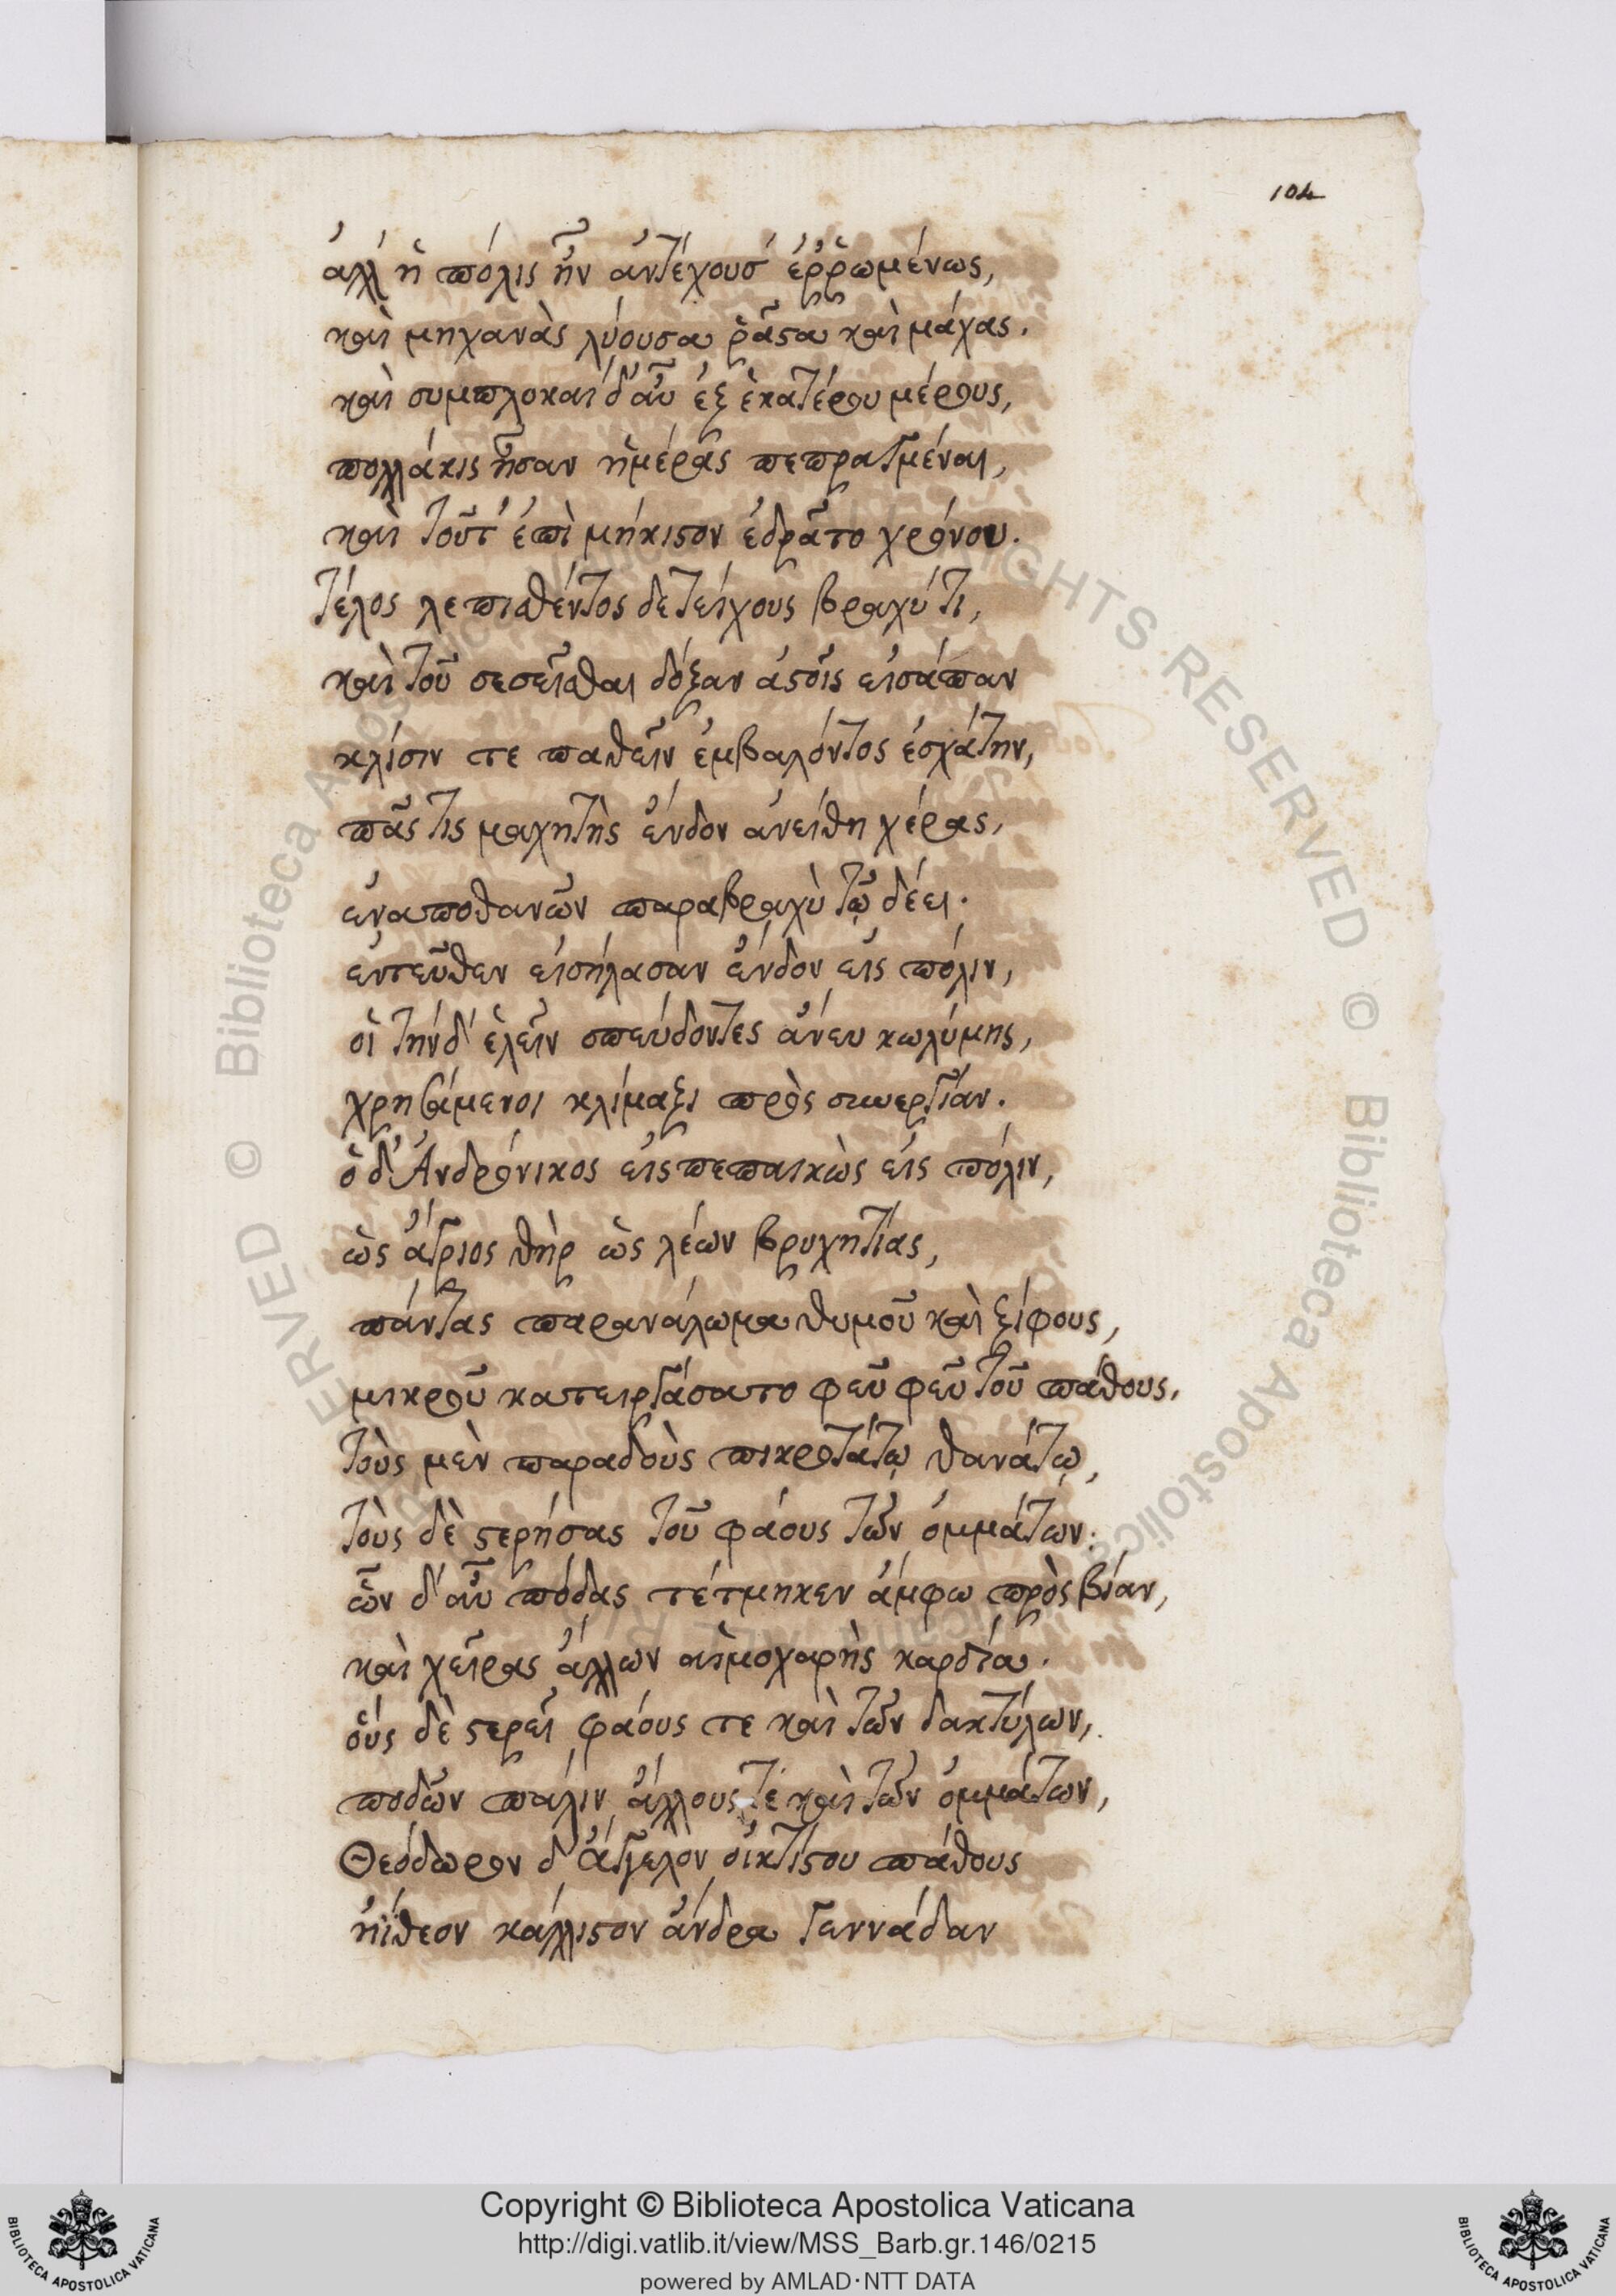 104
ἀλλ' ἡ πόλις ἦν ἀντέχουσ' ἐῤῥωμένως,
καὶ μηχανὰς λύουσα ῥᾷστα καὶ μάχας.
καὶ συμπλοκαὶ δ' αὖ ἐξ ἑκατέρου μέρους,
πολλάκις ἦσαν ἡμέρας πεπραγμέναι,
καὶ τοῦτ' ἐπὶ μήκιστον ἐδρᾶτο χρόνου.
τέλος λεπισθέντος δὲ τείχους βραχύ τι,
καὶ τοῦ σεσεῖσθαι δόξαν ἀστοῖς εἰσάπαν
κλίσιν τε παθεῖν ἐμβαλόντος ἐσχάτην,
πᾶς τις μαχητὴς ἔνδον ἀνείθη χέρας,
ἐναποθανὼν παραβραχὺ τῷ δέει.
ἐντεῦθεν εἰσήλασαν ἔνδον εἰς πόλιν,
οἱ τήνδ' ἑλεῖν σπεύδοντες ἄνευ κωλύμης,
χρησάμενοι κλίμαξι πρὸς συνεργίαν.
ὁ δ' Ἀνδρόνικος εἰσπεπαικὼς εἰς πόλιν,
ὡς ἄγριος θὴρ ὡς λέων βρυχητίας,
πάντας παρανάλωμα θυμοῦ καὶ ξίφους,
μικροῦ κατειργάσατο φεῦ φεῦ τοῦ πάθους.
τοὺς μὲν παραδοὺς πικροτάτῳ θανάτῳ,
τοὺς δὲ στερήσας τοῦ φάους τῶν ὀμμάτων.
ὧν δ' αὖ πόδας τέτμηκεν ἄμφω πρὸς βίαν,
καὶ χεῖρας ἄλλων αἱμοχαρὴς καρδία.
οὓς δὲ στερεῖ φάους τε καὶ τῶν δακτύλων,
ποδῶν πάλιν ἄλλους τὲ καὶ τῶν ὀμμάτων,
Θεόδωρον δ' Ἄγγελον οἰκτίστου πάθους
ἠΐθεον κάλλιστον ἄνδρα γεννάδαν
© Biblioteca Apostolica Vaticana ALL RIGHTS RESERVED
BIBLIOTECA APOSTOLICA VATICANA
Copyright © Biblioteca Apostolica Vaticana
http://digi.vatlib.it/view/MSS_Barb.gr.146/0215
powered by AMLAD·NTT DATA
BIBLIOTECA APOSTOLICA VATICANA